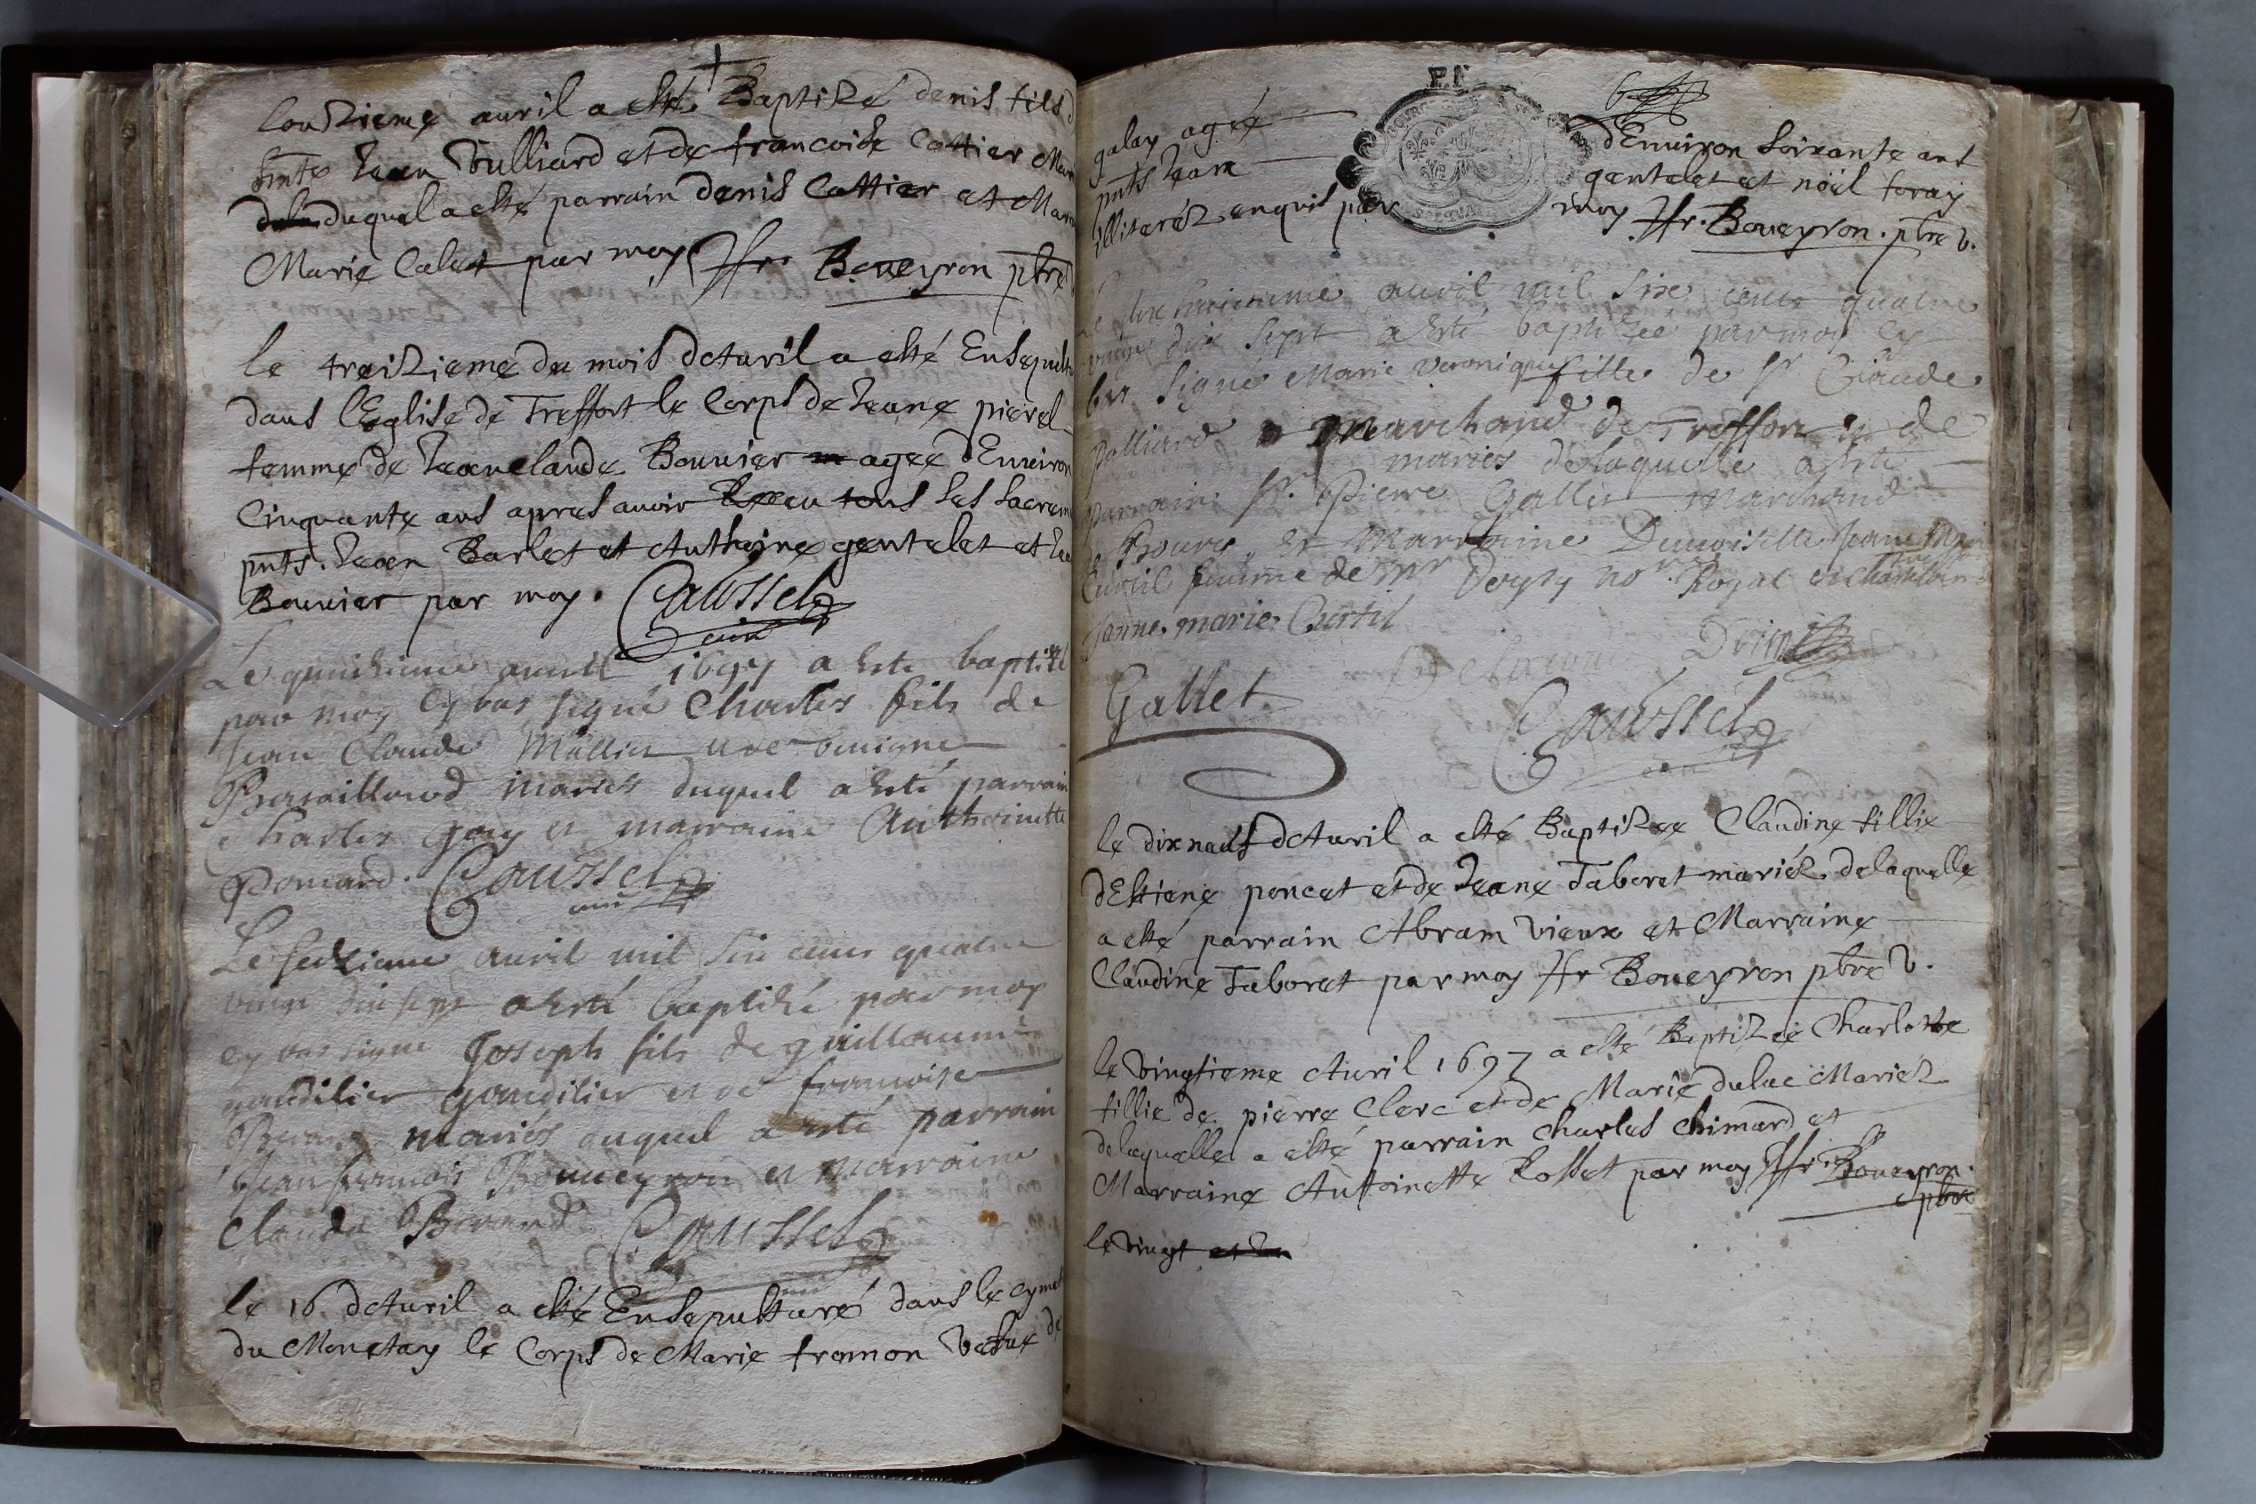 Lonzieme auril a esté Baptizé denis fils d
Jean Vulliard et de francoise Cottier Mar
duquel a esté parrain denis Cottier et Mar
Marie Calet par moy Boueyron pbre
le treizieme du mois dAuril a esté Ensepult
dans l'Eglise de Treffort le Corps de Jeane pierel
femme de Jeanclaude Bouuier agee d'Enuiron
Cinquante ans apres auoir Receu tous ses Sacrem
pnts. Jean Barlet et Anthoine gentelet et Jea
Bouuier par moy. Caussel
curé
Le quinzieme auril 1697 a esté baptizé
par moy cy bas signé Charles fils de
Jean Claude Mallet benigne
mariés duquel a esté parrain
Charles Goy et marraine Anthoinette
Ponard. Caussel
curé
Le seizieme auril mil six cens quatre
vingt dix sept a esté baptizé par moy
cy bas signé Joseph fils de guillaume
gaudilier et de francoise
mariés duquel a esté parrain
Jean francois Boueyron et marraine
Claude Berard Caussel
curé
le 16 dAuril a esté Ensepulturé dans le cyme
du Monetay le Corps de Marie fromon Vefue de
galay agée d'Enuiron Soixante ans
pnts Jean gentelet et noël foray
illiterés enquis par moy Boueyron. pbre v.
Le dix huitieme auril mil six cens quatre
vingt dix sept a esté baptizée par moy cy
bas signé Marie Veronique fille de Sr Claude
Palliard marchand de Treffort et de
mariés de laquelle a esté
parrain Sr. Pierre Gallet marchand
de Bourg et Marraine Demoiselle Jeane Marie
Curtil femme de Mr Royal
Janne marie Curtil
Gallet
Caussel
curé
le dix neuf dAuril a esté Baptizee Claudine fillie
d'Estiene poncet et de Jeane Taboret mariés. delaquelle
a esté parrain Abram Vieux et Marraine
Claudine Taboret par moy Boueyron pbre v.
le Vingtieme Auril 1697 a esté Baptizée Charlotte
fillie de pierre Clerc et de Marie duluc Mariés
delaquelle a esté parrain Charles Chimard et
Marraine Anttoinette Rosset par moy Boueyron.
pbre
le vingt et un